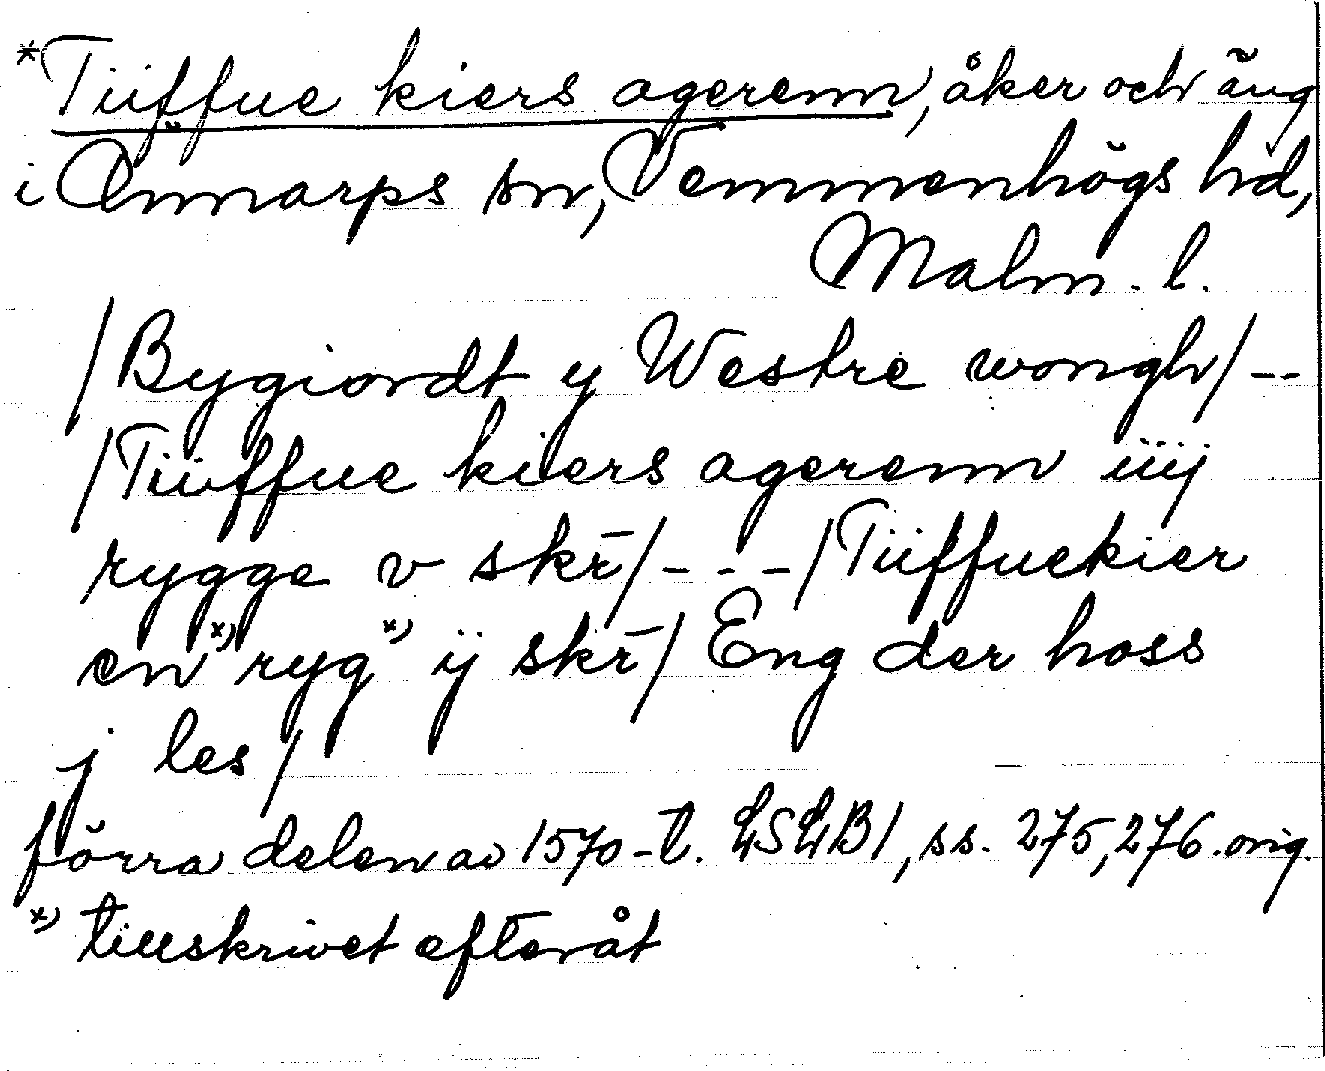 *Tiüffue kiers agerenn, åker och äng
i Önnarps sn, Vemmenhögs hd,
Malm. l.
/Bygiordt y Westre wongh/--
/Tiüffue kiers agerenn iiij
rygge v skr̄/---/Tiiffuekier
en *) ryg *) ij skr̄/ Eng der hoss
j les/
förra delen av 1570-t. LSLB1, ss. 275, 276. orig.
*) tillskrivet efteråt